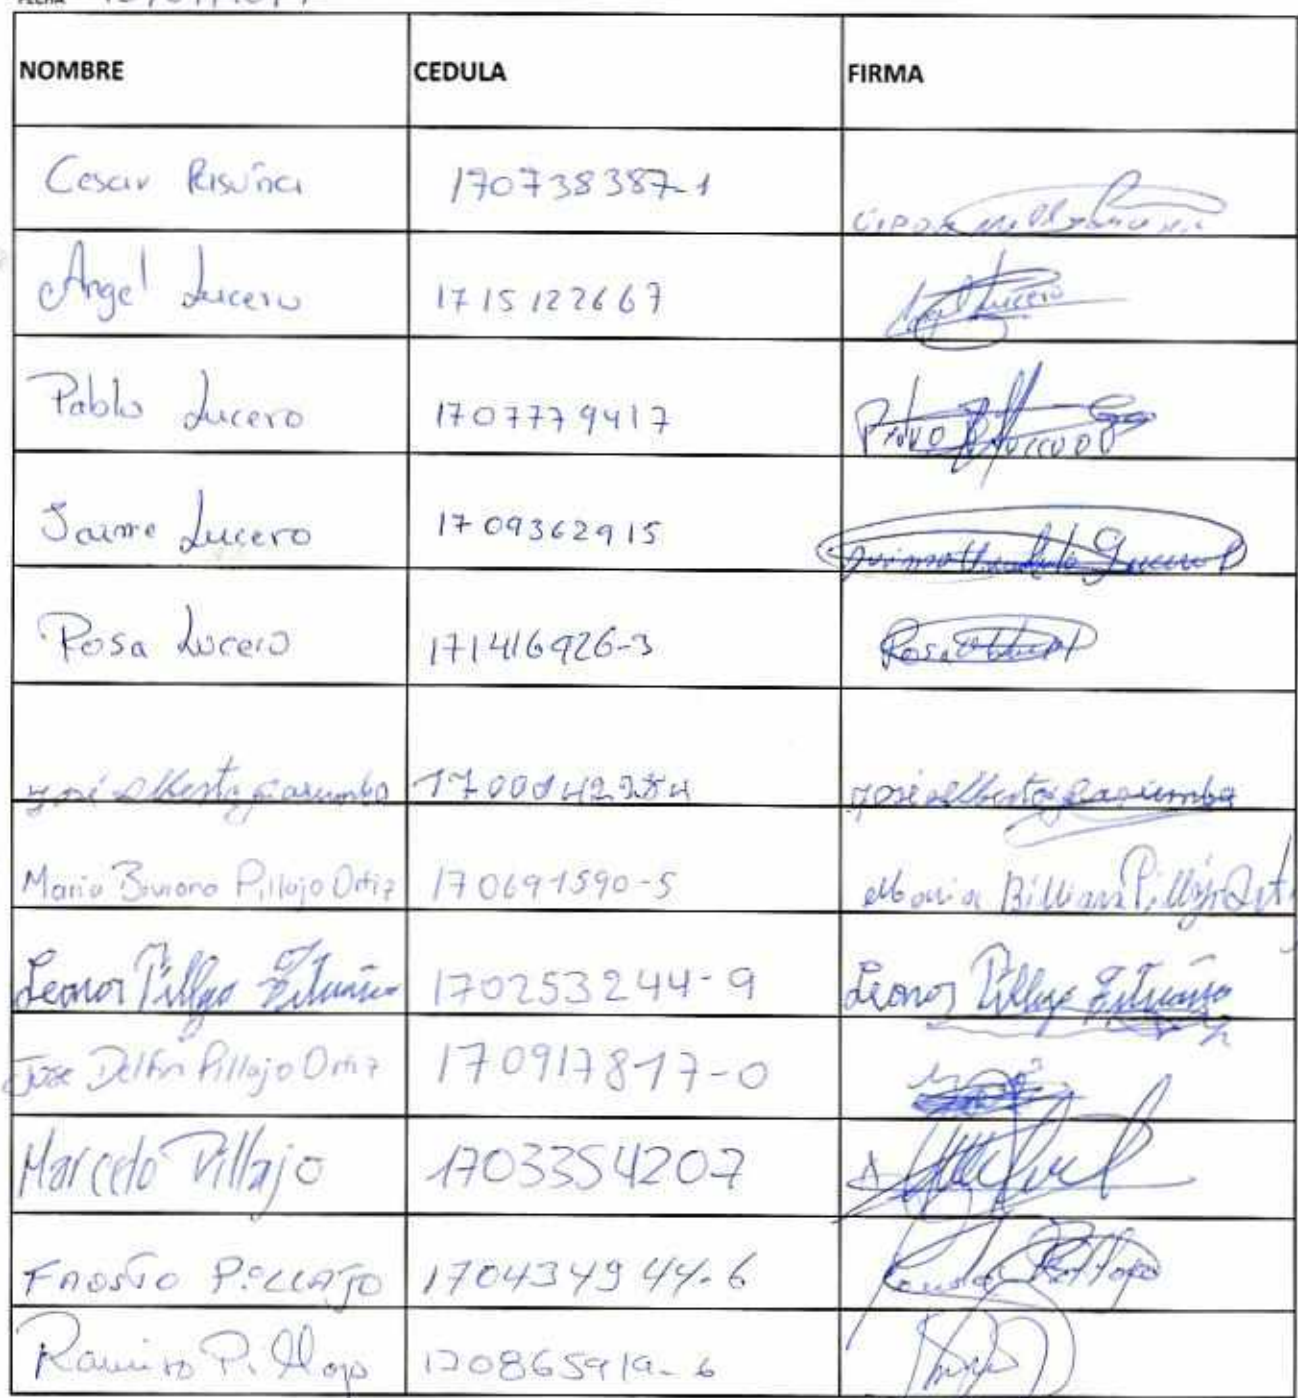 FECHA
NOMBRE CEDULA FIRMA
Cesar Risueña 170738387-1
Angel Lucero 1715122667
Pablo Lucero 1707779417
Jaime Lucero 1709362915
Rosa Lucero 171416926-3 Rosa
José Alberto 
José Alberto
Maria Biviana Pillajo Ortiz 170691590-5 Maria Billiana Pillajo Orti
Leonor Pillajo 170253244-9 Leonor Pillajo
Jose Delfin Pillajo Ortiz 170917817-0
Marcelo Pillajo 1703354207
FAUSTO PILLAJO 170434944-6
Ramiro Pillajo 170865919-6